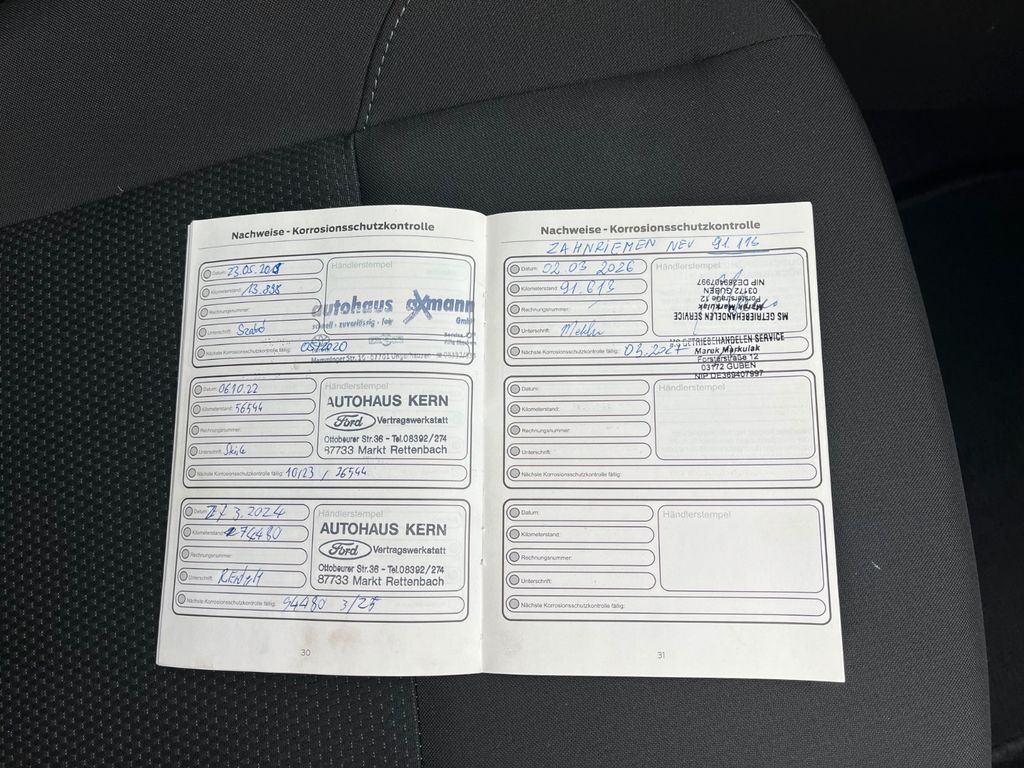 Nachweise - Korrosionsschutzkontrolle
Datum: 23.05.2019
Kilometerstand: 13.895
Rechnungsnummer:
Unterschrift: Szabó
Händlerstempel
autohaus axmann
GmbH
schnell · zuverlässig · fair
Nächste Korrosionsschutzkontrolle fällig: 05/2020
Datum: 06.10.22
Kilometerstand: 56544
Rechnungsnummer:
Unterschrift:
AUTOHAUS KERN
Ford Vertragswerkstatt
Ottobeurer Str.36 - Tel.08392/274
87733 Markt Rettenbach
Nächste Korrosionsschutzkontrolle fällig: 10/23 / 76544
Datum: 27.3.2024
Kilometerstand: 74480
Rechnungsnummer:
Unterschrift:
Händlerstempel
AUTOHAUS KERN
Ford Vertragswerkstatt
Ottobeurer Str.36 - Tel.08392/274
87733 Markt Rettenbach
Nächste Korrosionsschutzkontrolle fällig: 94480 3/25
30
Nachweise - Korrosionsschutzkontrolle
ZAHNRIEMEN NEU 91.113
Datum: 02.03 2026
Kilometerstand: 91.613
Rechnungsnummer:
Unterschrift:
Händlerstempel
MS GETRIEBEHANDELEN SERVICE
Marek Markulak
Forsterstraße 12
03172 GUBEN
NIP DE369407997
Nächste Korrosionsschutzkontrolle fällig: 03.2027
MS GETRIEBEHANDELEN SERVICE
Marek Markulak
Forsterstraße 12
03172 GUBEN
NIP DE369407997
Datum:
Kilometerstand:
Rechnungsnummer:
Unterschrift:
Händlerstempel
Nächste Korrosionsschutzkontrolle fällig:
Datum:
Kilometerstand:
Rechnungsnummer:
Unterschrift:
Händlerstempel
Nächste Korrosionsschutzkontrolle fällig:
31